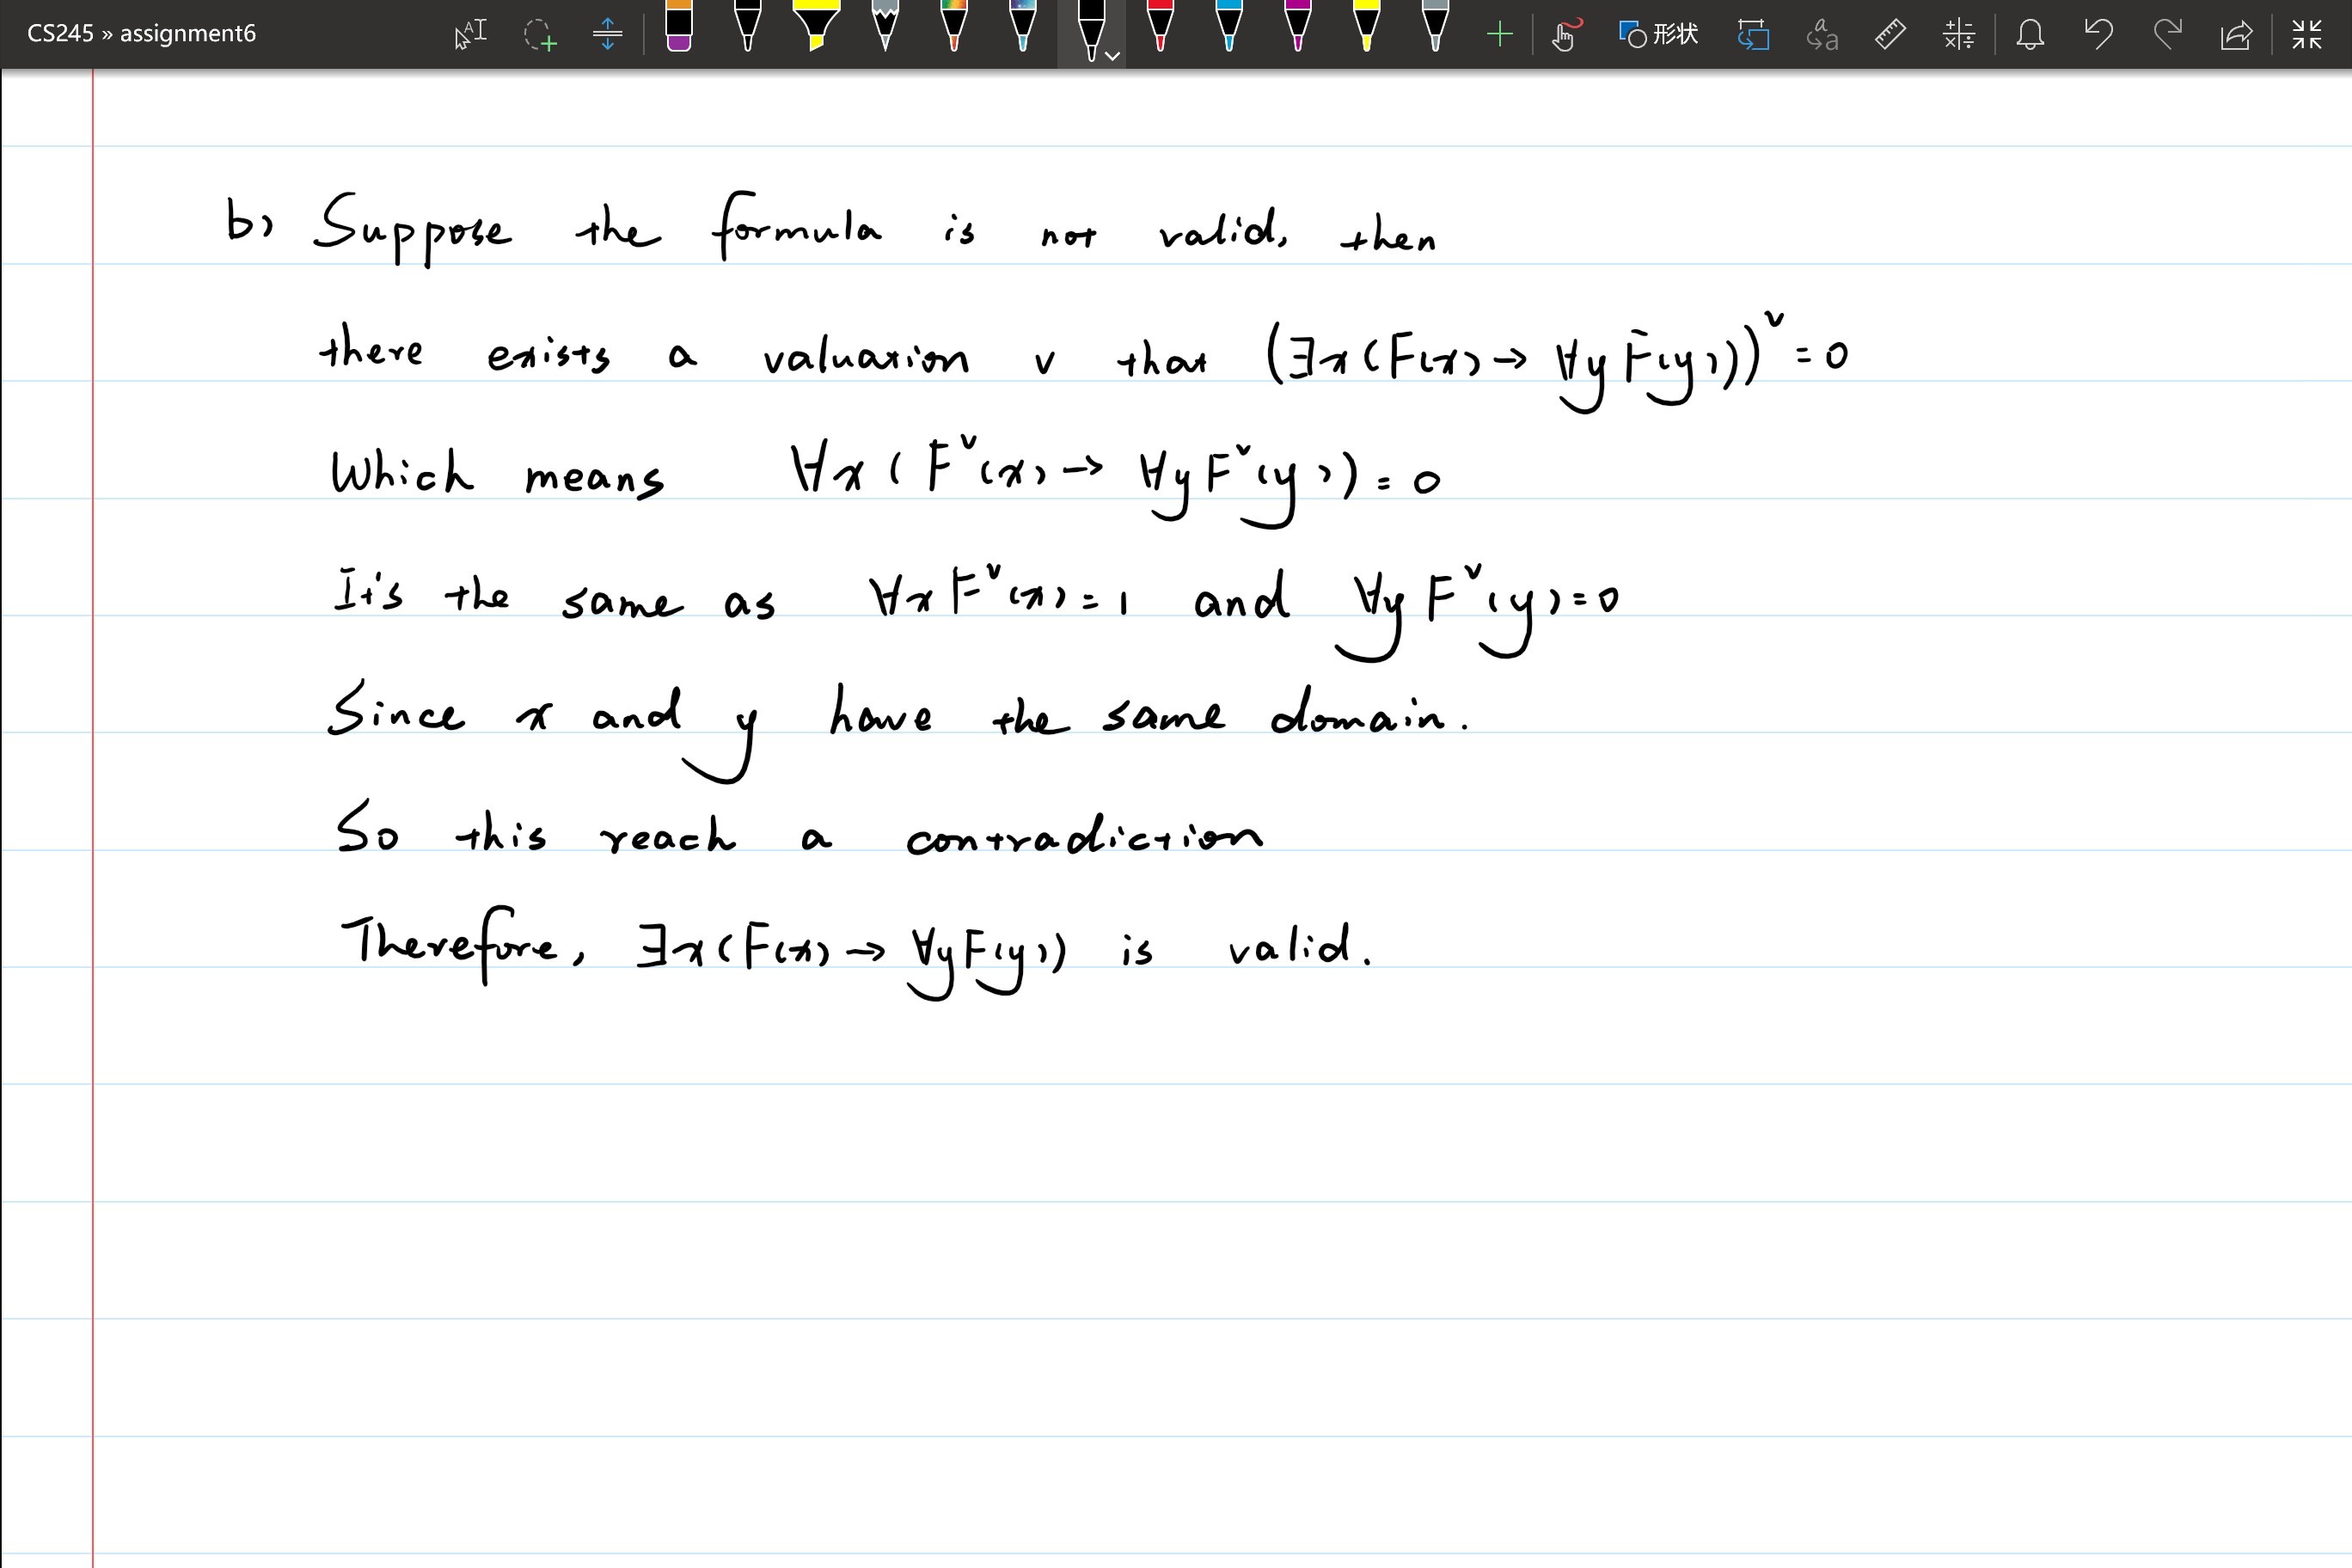 CS245 » assignment6
形状
b) Suppose the formula is not valid, then
there exists a valuation v that (∃x(F(x) → ∀y F(y)))ᵛ = 0
Which means ∀x (Fᵛ(x) → ∀y Fᵛ(y)) = 0
It's the same as ∀x Fᵛ(x) = 1 and ∀y Fᵛ(y) = 0
Since x and y have the same domain.
So this reach a contradiction
Therefore, ∃x(F(x) → ∀y F(y)) is valid.